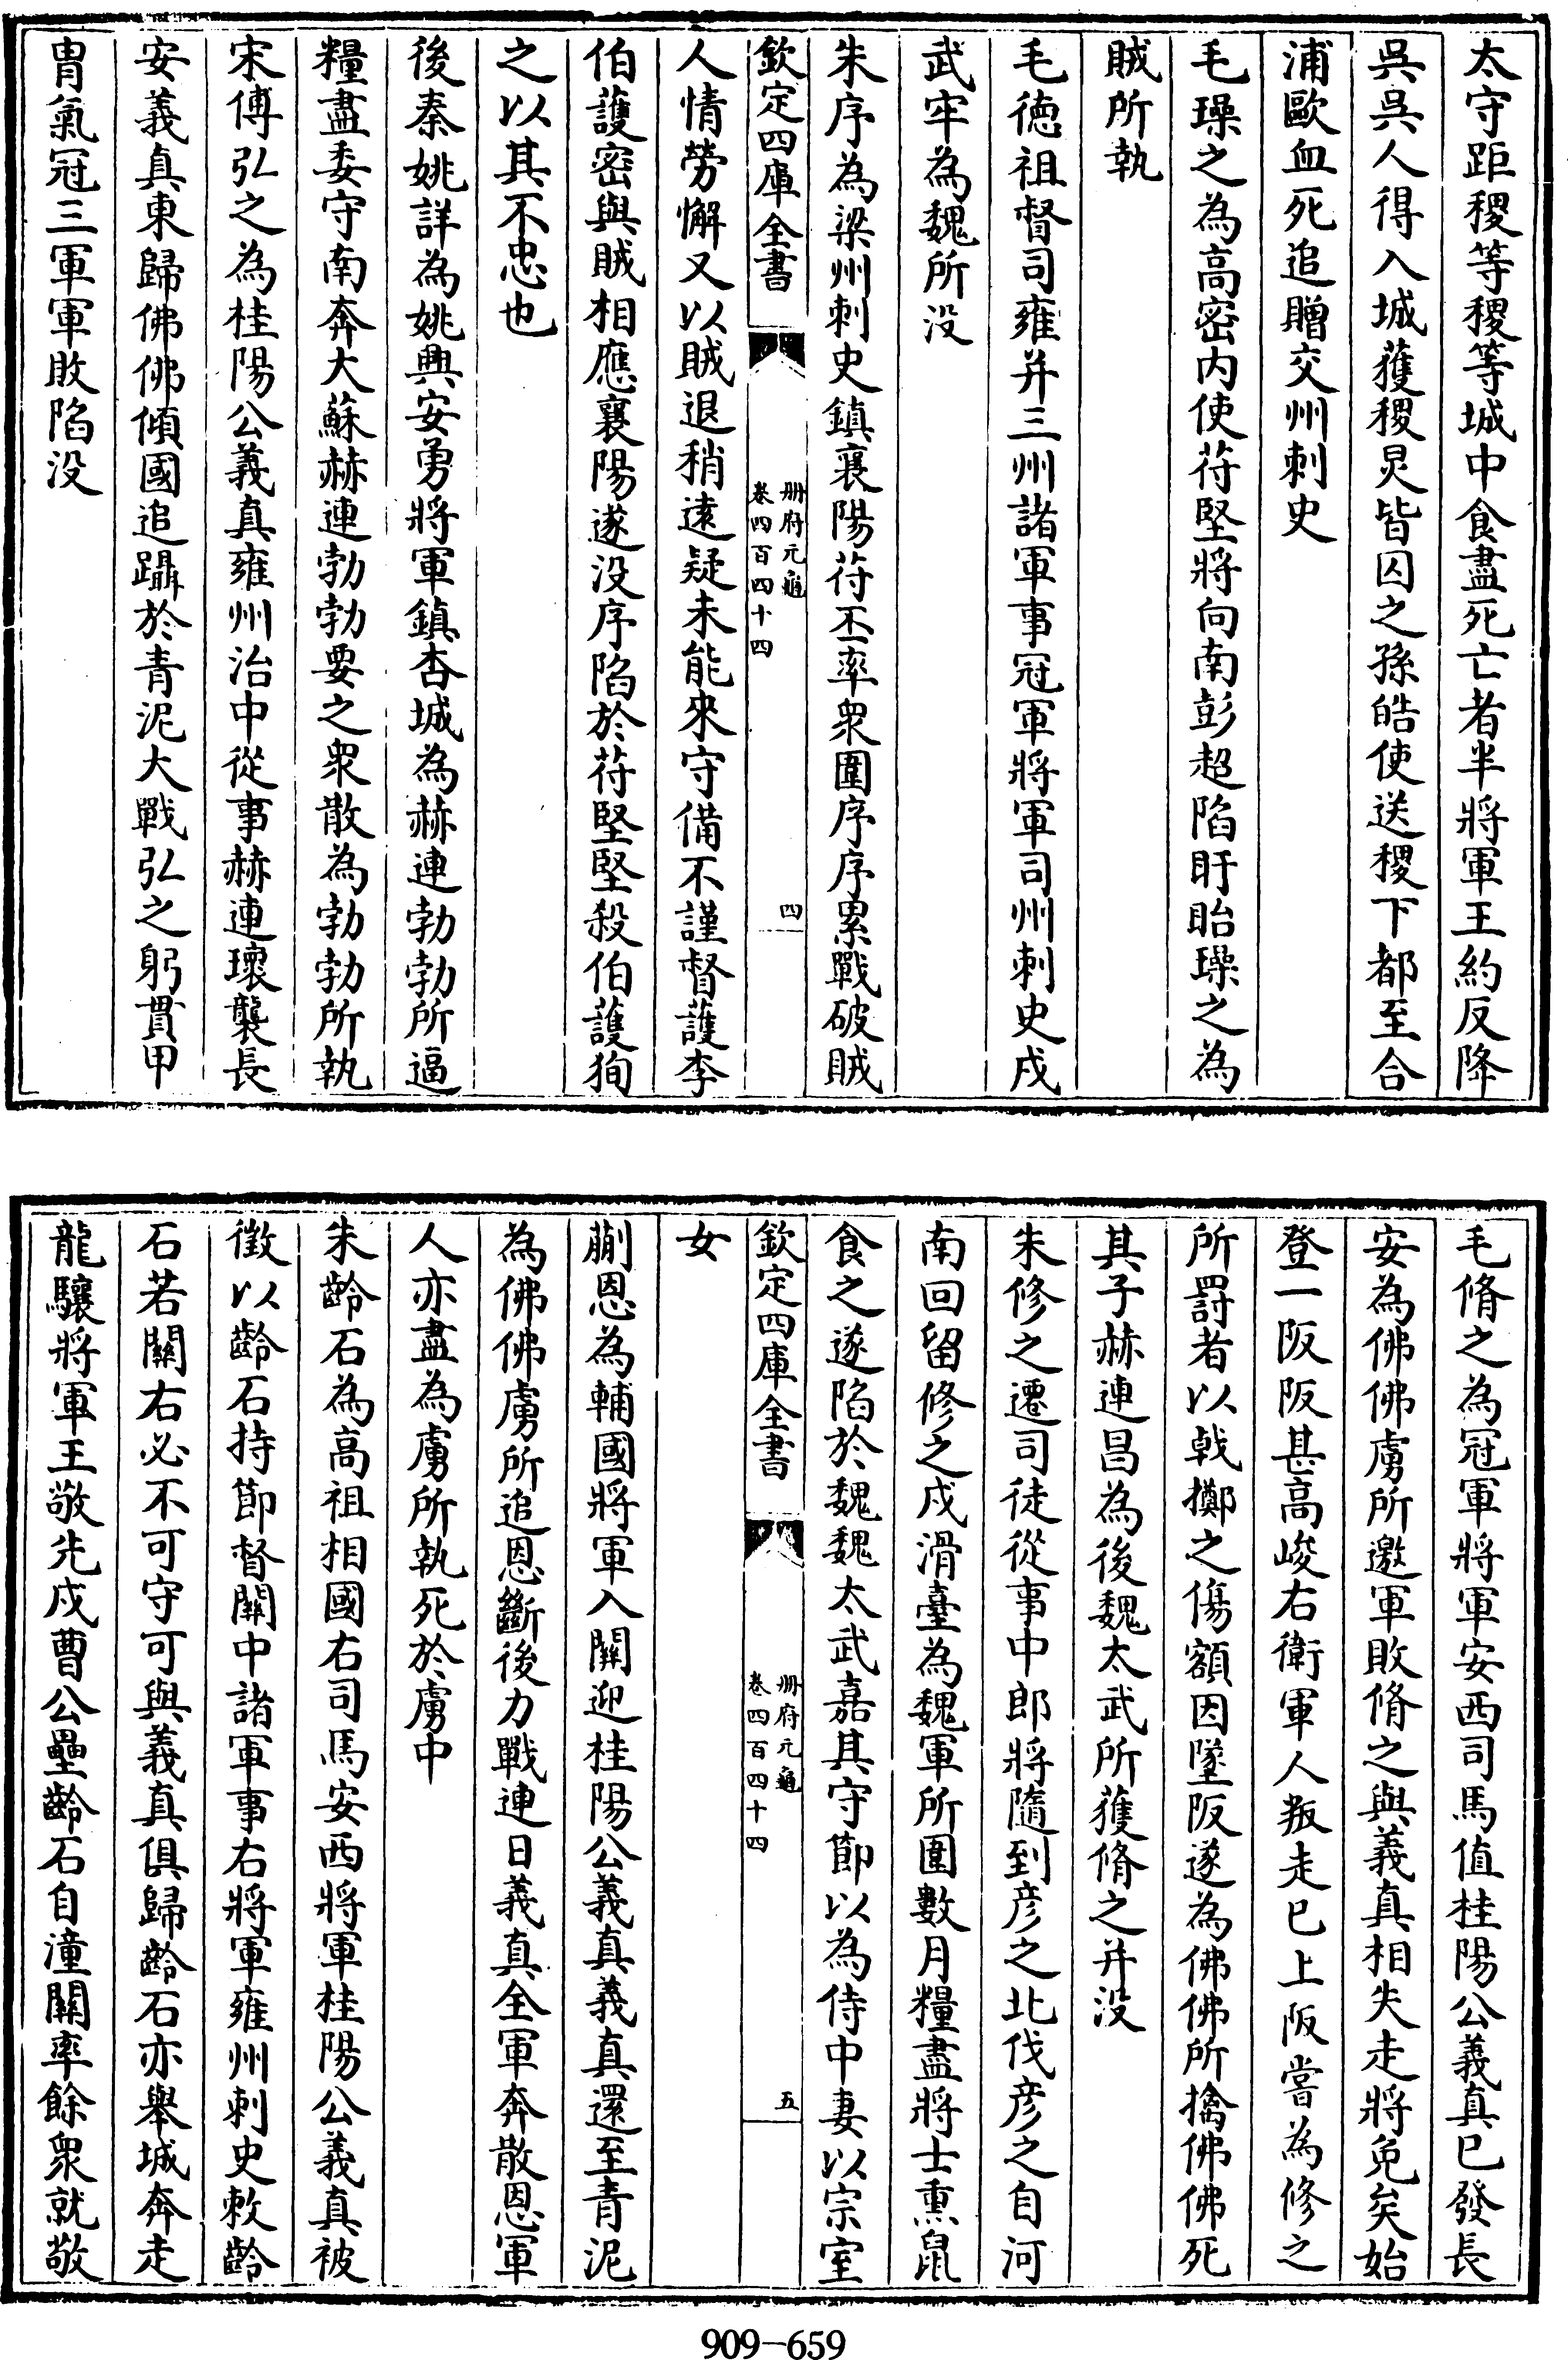 太守距稷等稷等城中食盡死亡者半將軍王約反降
吳吳人得入城獲稷炅皆囚之孫皓使送稷下都至合
浦歐血死追贈交州刺史
毛璪之為高密内使苻堅將向南彭超陷盱眙璪之為
賊所執
毛徳祖督司雍并三州諸軍事冠軍將軍司州刺史戍
武牢為魏所没
朱序為梁州刺史鎮襄陽苻丕率衆圍序序累戰破賊
欽定四庫全書
册府元龜
卷四百四十四
四
人情勞懈又以賊退稍逺疑未能來守備不謹督護李
伯護密與賊相應襄陽遂没序陷於苻堅堅殺伯護狥
之以其不忠也
後秦姚詳為姚興安勇將軍鎮杏城為赫連勃勃所逼
糧盡委守南奔大蘇赫連勃勃要之衆散為勃勃所執
宋傅弘之為桂陽公義真雍州治中從事赫連瓌襲長
安義真東歸佛佛傾國追躡於青泥大戰弘之躬貫甲
胄氣冠三軍軍敗陷没
毛脩之為冠軍將軍安西司馬值桂陽公義真已發長
安為佛佛虜所邀軍敗脩之與義真相失走將免矣始
登一阪阪甚高峻右衛軍人叛走已上阪嘗為修之
所罸者以戟擲之傷額因墜阪遂為佛佛所擒佛佛死
其子赫連昌為後魏太武所獲脩之并没
朱修之遷司徒從事中郎將隨到彦之北伐彦之自河
南回留修之戍滑臺為魏軍所圍數月糧盡將士熏鼠
食之遂陷於魏魏太武嘉其守節以為侍中妻以宗室
欽定四庫全書
册府元龜
卷四百四十四
五
女
蒯恩為輔國將軍入關迎桂陽公義真義真還至青泥
為佛佛虜所追恩斷後力戰連日義真全軍奔散恩軍
人亦盡為虜所執死於虜中
朱齡石為高祖相國右司馬安西將軍桂陽公義真被
徴以齡石持節督關中諸軍事右將軍雍州刺史敕齡
石若關右必不可守可與義真俱歸齡石亦舉城奔走
龍驤將軍王敬先戍曹公壘齡石自潼關率餘衆就敬
909-659